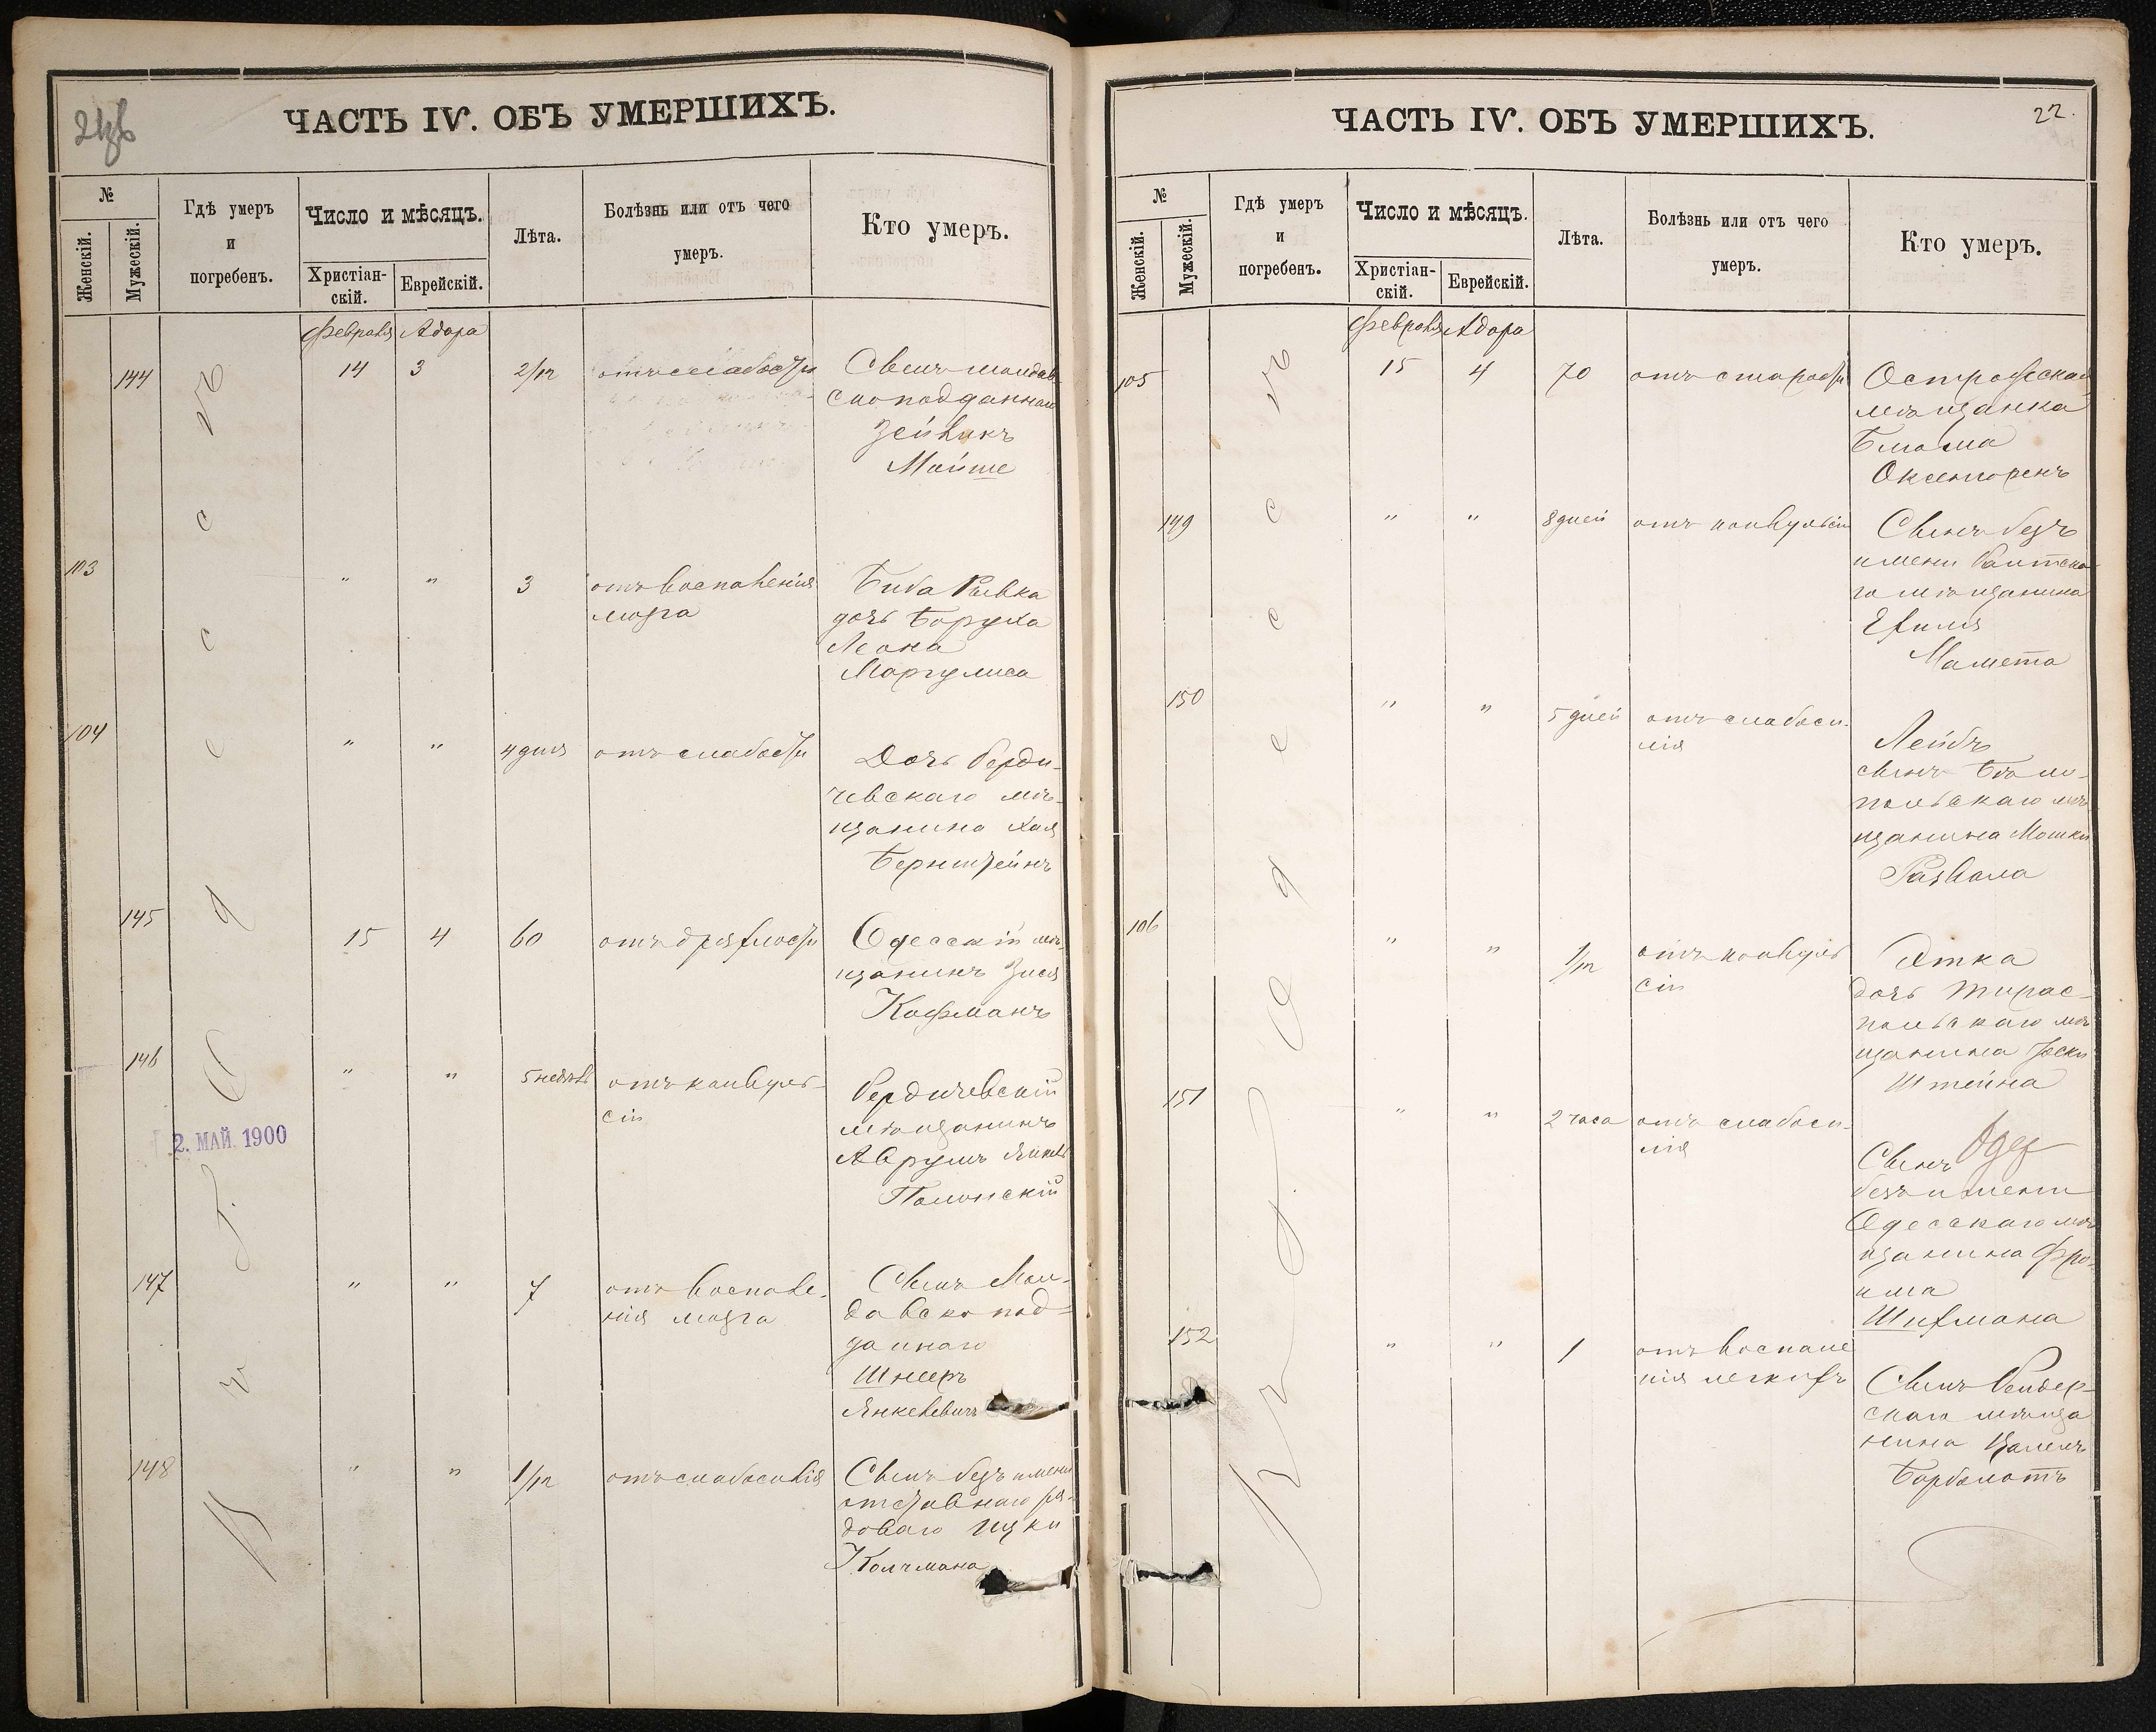 ЧАСТЬ IV. ОБЪ УМЕРШИХЪ.
№
Женскій.
Мужескій.
Гдѣ умеръ
и
погребенъ.
Число и мѣсяцъ.
Христіан-
скій.
Еврейскій.
Лѣта.
Болѣзнь или отъ чего
умеръ.
Кто умеръ.
Февраля Адара
144 14 3 2/12 отъ слабости Сынъ молдав
скоподданнаго
Зейликъ
Мойше
103 " " 3 отъ воспаленія
мозга
Биба Ривка
дочь Боруха
Леона
Маргулиса
104 " " 4 дня отъ слабости Дочь Берди-
чевскаго мѣ-
щанина Хая
Бернштейнъ
145 15 4 60 отъ дряхлости Одесскій мѣ-
щанинъ Зися
Кофманъ
146 " " 5 недѣль отъ конвуль-
сіи
Бердичевскій
мѣщанинъ
Аврумъ
Полонскій
2. МАЙ. 1900
147 " " 7 отъ воспале-
нія мозга
Сынъ Мол-
давско под-
даннаго
Шнееръ
Янкелевичъ
148 " " 1/12 отъ слабосилія Сынъ безъ имени
отставнаго ря-
доваго Ицки
Колчмана
въ г. Одессѣ
ЧАСТЬ IV. ОБЪ УМЕРШИХЪ.
22.
№
Женскій.
Мужескій.
Гдѣ умеръ
и
погребенъ.
Число и мѣсяцъ.
Христіан-
скій.
Еврейскій.
Лѣта.
Болѣзнь или отъ чего
умеръ.
Кто умеръ.
Февраля Адара
105 15 4 70 отъ старости Острожская
мѣщанка
Блюма
Оксенгоренъ
149 " " 8 дней отъ конвульсіи Сынъ безъ
имени
го мѣщанина
Ехиля
Мамета
150 " " 5 дней отъ слабоси-
лія
Лейбъ
сынъ Бѣло-
польскаго мѣ
щанина Мошки
Развала
106 " " 1/12 отъ конвуль
сіи
Этка
дочь Тирас-
польскаго мѣ
щанина Іоски
Штейна
151 " " 2 часа отъ слабоси-
лія
Сынъ
безъ имени
Одесскаго мѣ
щанина Фро-
има
Шихмана
152 " " 1 отъ воспале
нія легкихъ
Сынъ Бендер-
скаго мѣща
нина
Барбаматъ